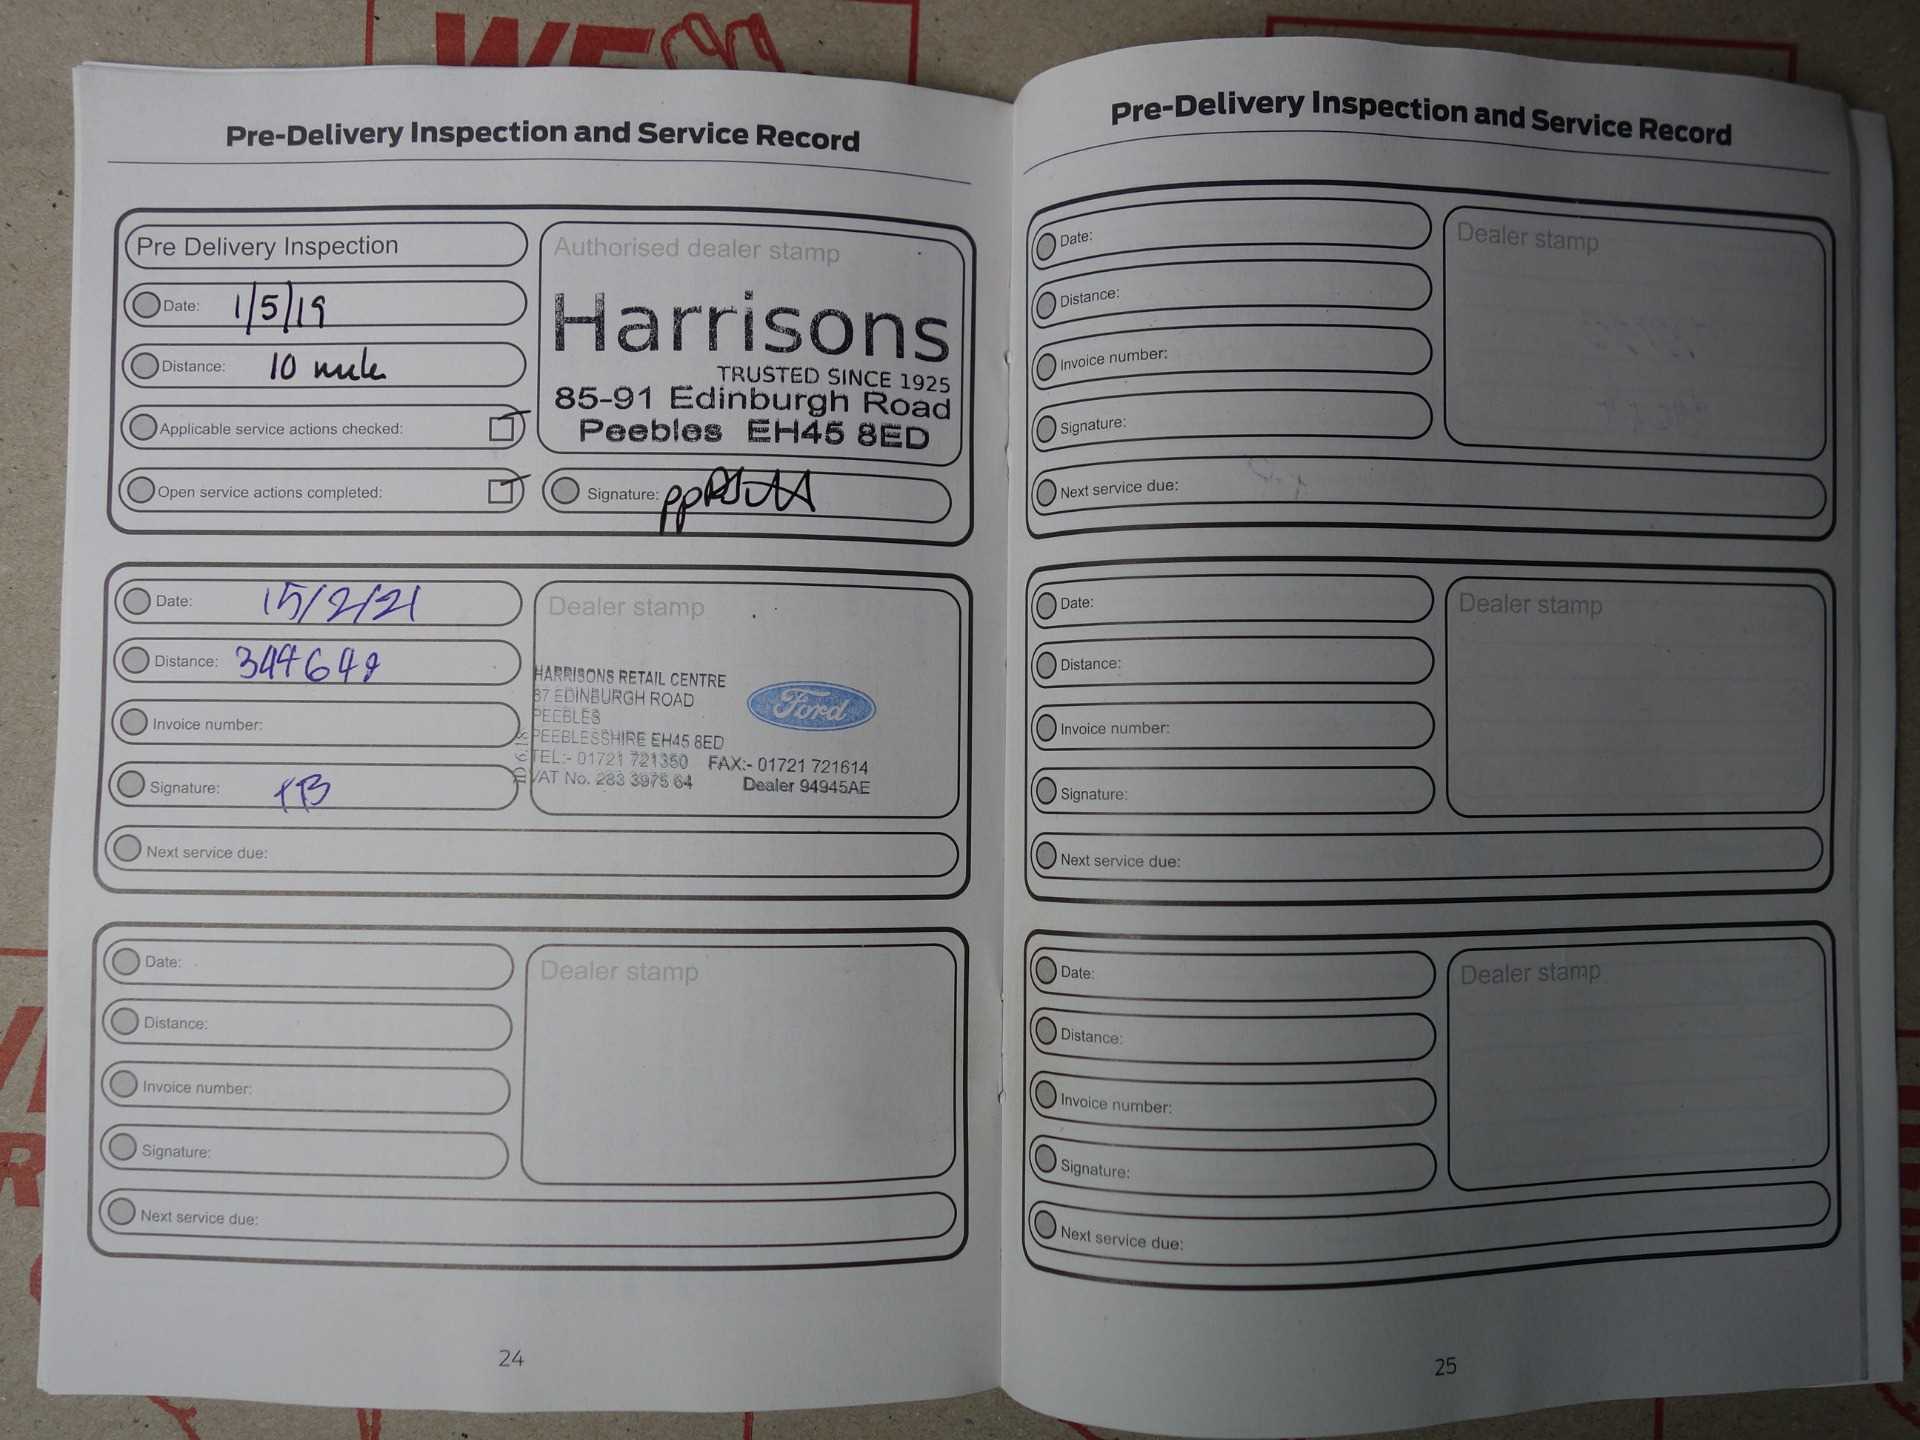 WE
Pre-Delivery Inspection and Service Record
Pre Delivery Inspection
Date: 1/5/19
Distance: 10 mile
Applicable service actions checked:
Open service actions completed:
Authorised dealer stamp
Harrisons
TRUSTED SINCE 1925
85-91 Edinburgh Road
Peebles EH45 8ED
Signature:
Date: 15/2/21
Distance:
Invoice number:
Signature:
Next service due:
Dealer stamp
HARRISONS RETAIL CENTRE
87 EDINBURGH ROAD
PEEBLES
PEEBLESSHIRE EH45 8ED
TEL:- 01721 721350 FAX:- 01721 721614
VAT No. 283 3975 64 Dealer 94945AE
Ford
Date:
Distance:
Invoice number:
Signature:
Next service due:
Dealer stamp
24
Pre-Delivery Inspection and Service Record
Date:
Distance:
Invoice number:
Signature:
Next service due:
Dealer stamp
Date:
Distance:
Invoice number:
Signature:
Next service due:
Dealer stamp
Date:
Distance:
Invoice number:
Signature:
Next service due:
Dealer stamp
25